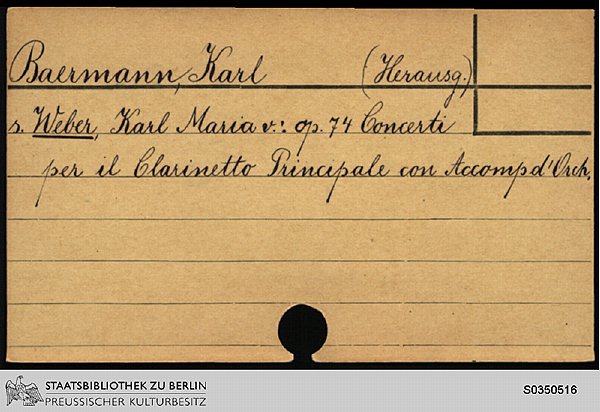 Baermann, Karl (Herausg.)
s. Weber, Karl Maria v.: op. 74 Concerti
per il Clarinetto Principale con Accomp d'Orch.
STAATSBIBLIOTHEK ZU BERLIN
PREUSSISCHER KULTURBESITZ
S0350516